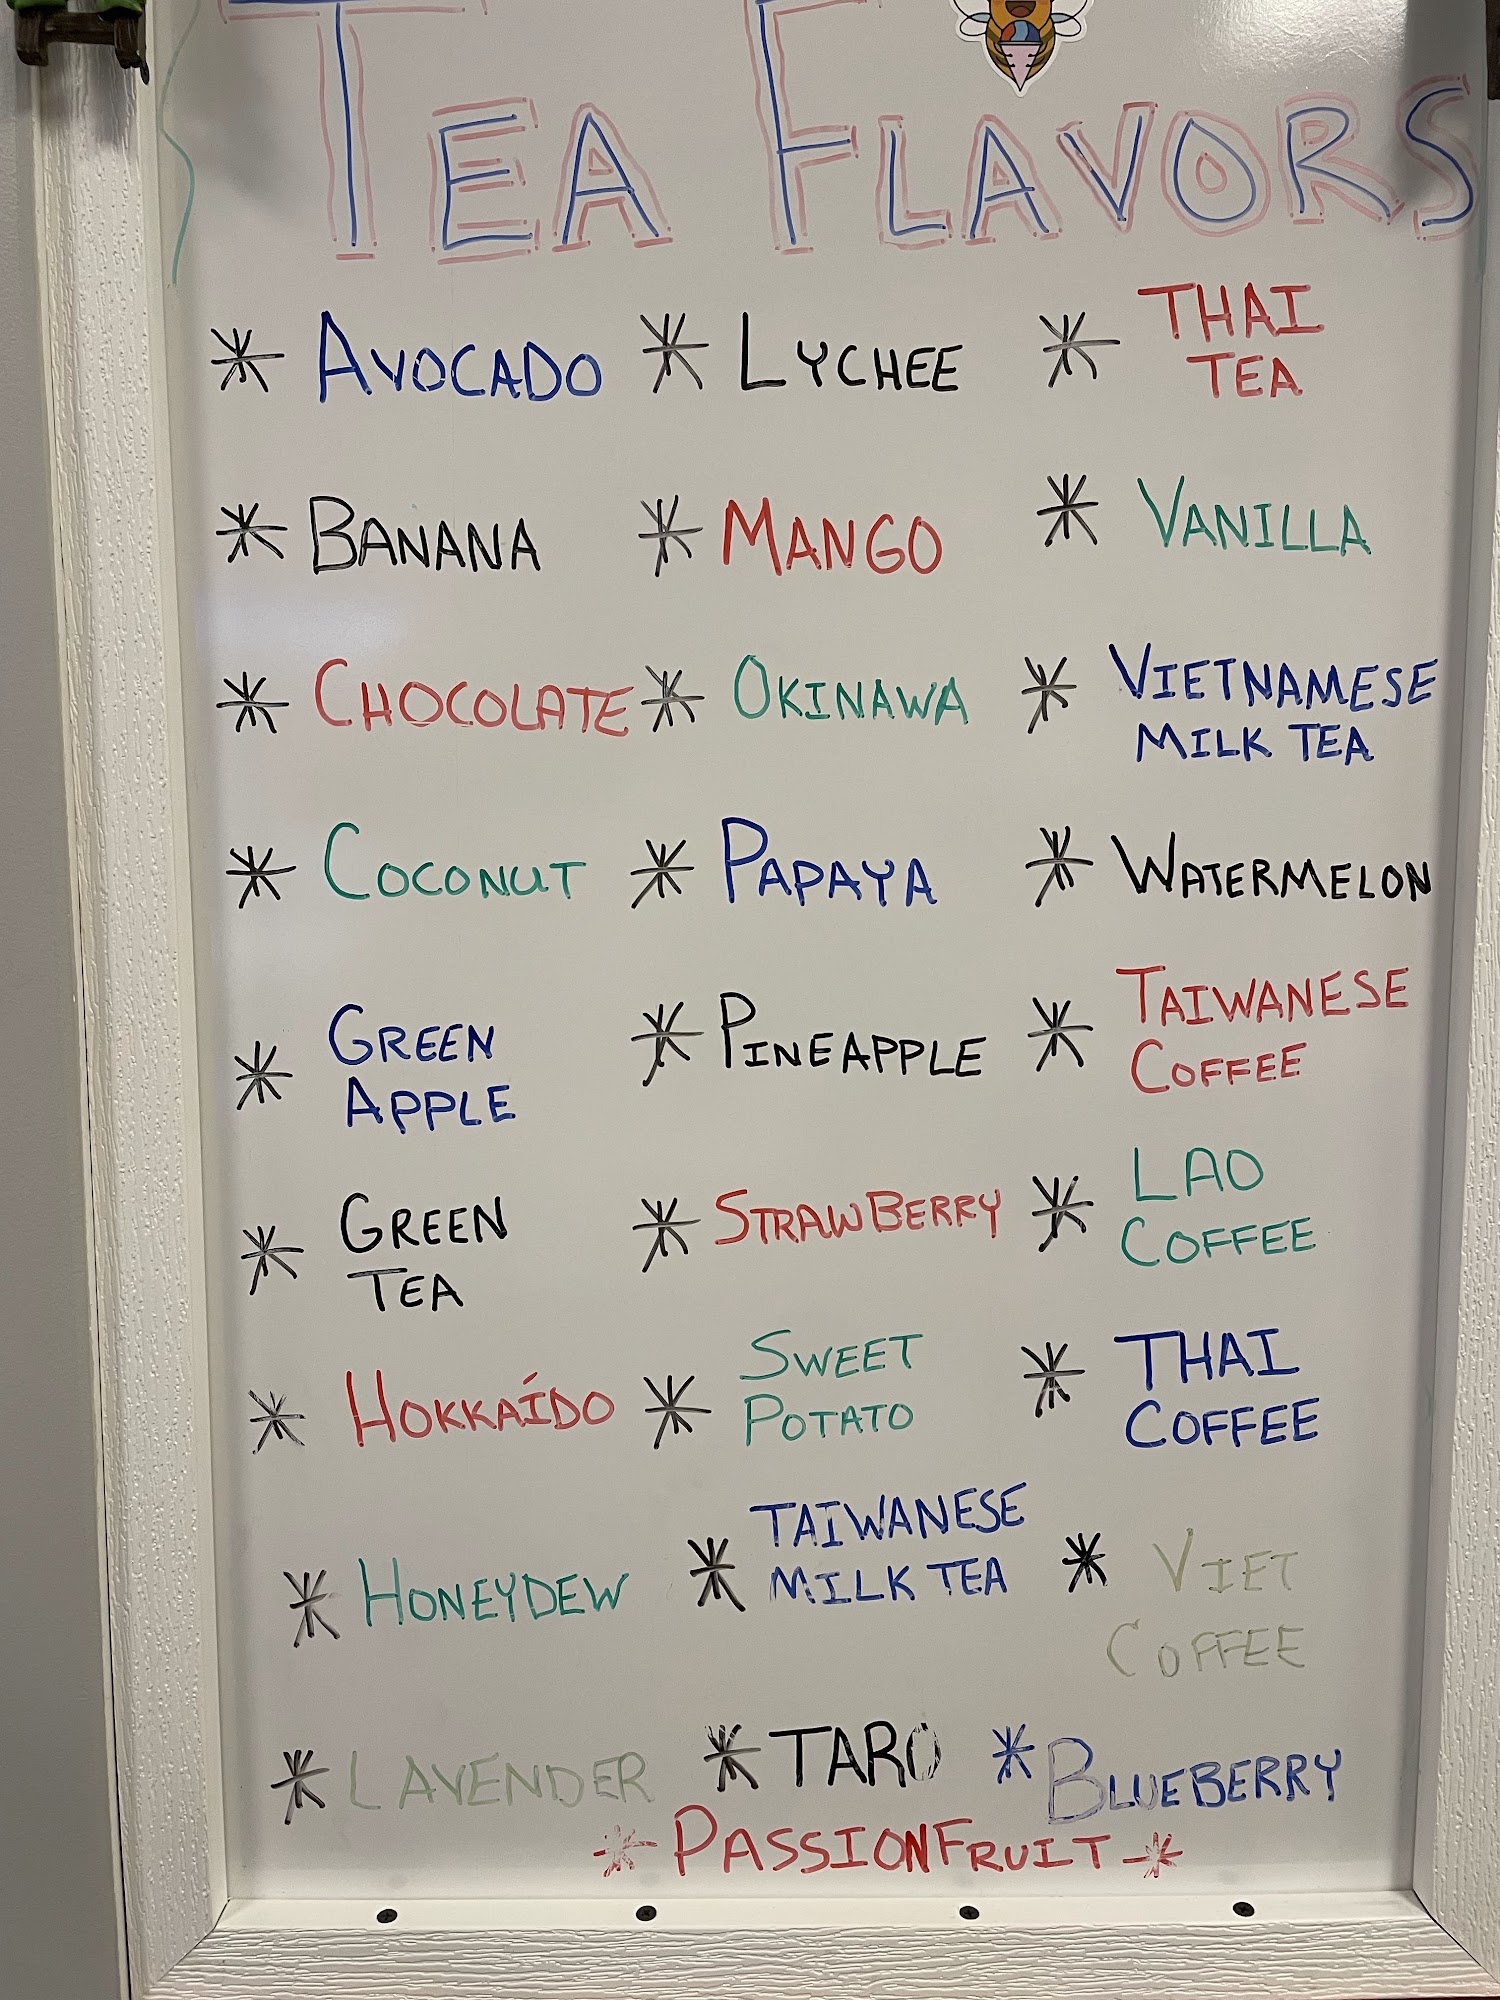 TEA FLAVORS
* AVOCADO
* BANANA
* CHOCOLATE
* COCONUT
* GREEN
APPLE
* GREEN
TEA
* HOKKAÍDO
* HONEYDEW
* LAVENDER
* LYCHEE
* MANGO
* OKINAWA
* PAPAYA
* PINEAPPLE
* STRAWBERRY
* SWEET
POTATO
* TAIWANESE
MILK TEA
* TARO
* THAI
TEA
* VANILLA
* VIETNAMESE
MILK TEA
* WATERMELON
* TAIWANESE
COFFEE
* LAO
COFFEE
* THAI
COFFEE
* VIET
COFFEE
* BLUEBERRY
* PASSIONFRUIT *